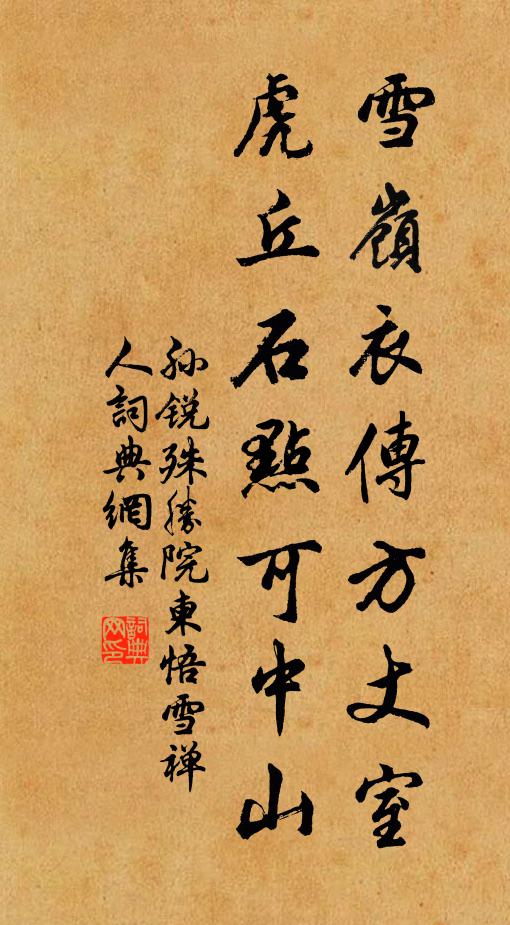 雪嶺衣傳方丈室
虎丘石點可中山
孙锐殊勝院東悟雪禅
人詞典網集
詞典
网印